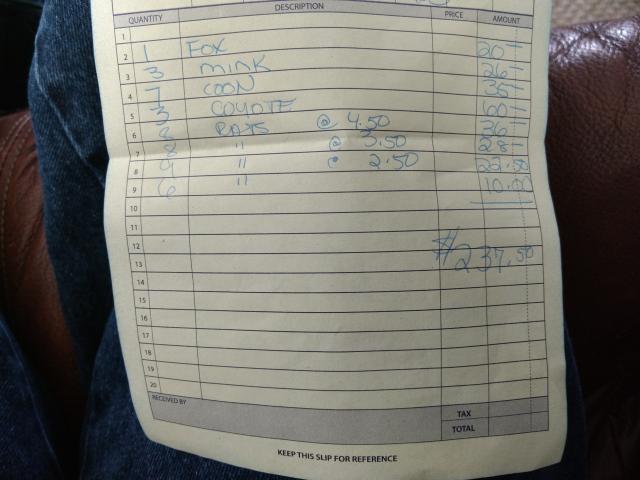 QUANTITY DESCRIPTION PRICE AMOUNT
1
2 1 FOX 20-
3 3 MINK 26-
4 7 COON 35-
5 3 COYOTE 60-
6 8 RATS @ 4.50 36-
7 8 " @ 3.50 28-
8 9 " @ 2.50 22.50
9 6 " 10.00
10
11
12
13 $237.50
14
15
16
17
18
19
20
RECEIVED BY
TAX
TOTAL
KEEP THIS SLIP FOR REFERENCE